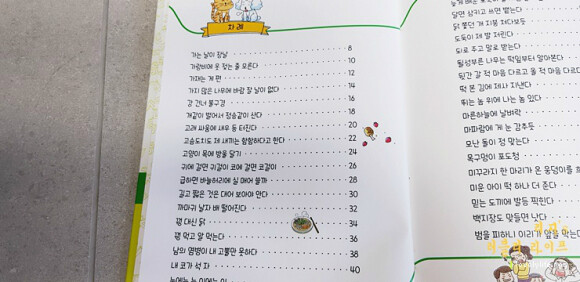 차례
가는 날이 장날 8
가랑비에 옷 젖는 줄 모른다 10
가재는 게 편 12
가지 많은 나무에 바람 잘 날이 없다 14
강 건너 불구경 16
개같이 벌어서 정승같이 산다 18
고래 싸움에 새우 등 터진다 20
고슴도치도 제 새끼는 함함하다고 한다 22
고양이 목에 방울 달기 24
귀에 걸면 귀걸이 코에 걸면 코걸이 26
급하면 바늘허리에 실 매어 쓸까 28
길고 짧은 것은 대어 보아야 안다 30
까마귀 날자 배 떨어진다 32
꿩 대신 닭 34
꿩 먹고 알 먹는다 36
남의 염병이 내 고뿔만 못하다 38
내 코가 석 자 40
달면 삼키고 쓰면 뱉는다
닭 쫓던 개 지붕 쳐다보듯
도둑이 제 발 저린다
되로 주고 말로 받는다
떡 본 김에 제사 지낸다
뛰는 놈 위에 나는 놈 있다
마른하늘에 날벼락
마파람에 게 눈 감추듯
모난 돌이 정 맞는다
목구멍이 포도청
미꾸라지 한 마리가 온 웅덩이를
미운 아이 떡 하나 더 준다
믿는 도끼에 발등 찍힌다
백지장도 맞들면 낫다
범을 피하니 이리가 앞을 막는다